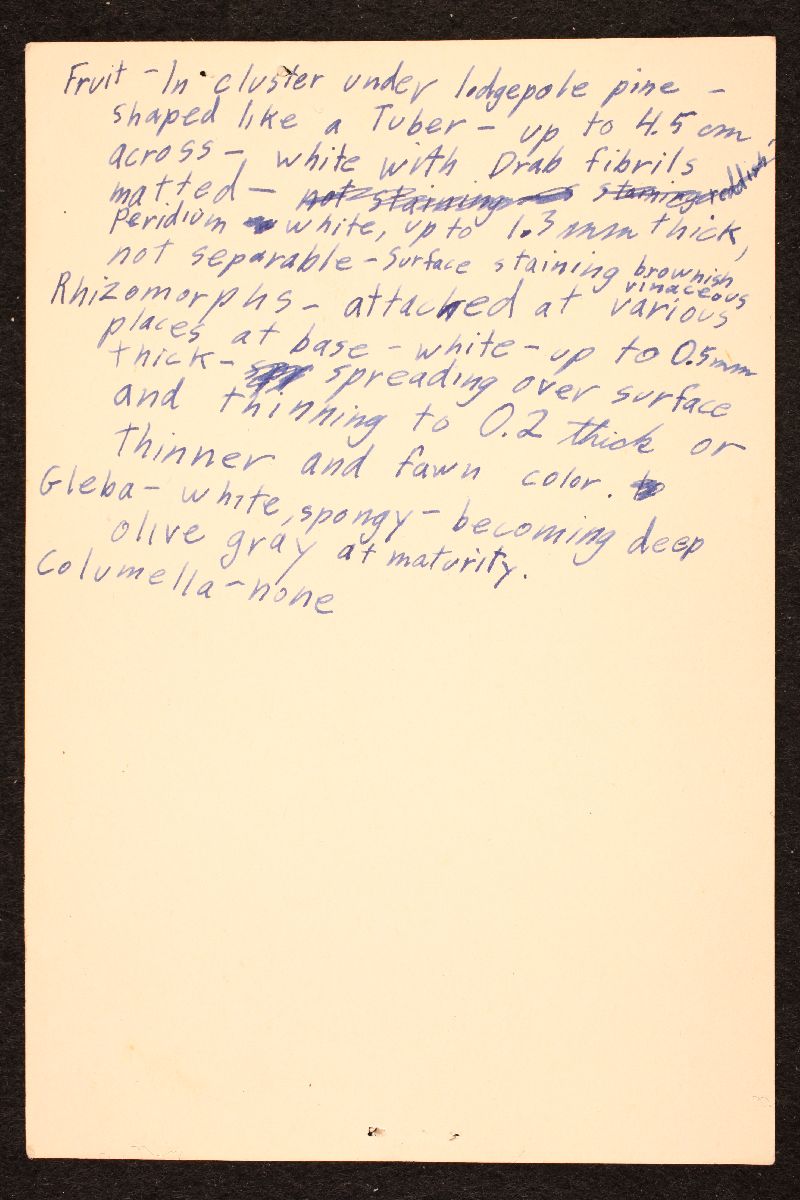 Fruit - In cluster under lodgepole pine -
shaped like a Tuber - up to 4.5 cm
across - white with Drab fibrils
matted - not staining staining reddish
Peridium white, up to 1.3 mm thick,
not separable - Surface staining brownish
vinaceous
Rhizomorphs - attached at various
places at base - white - up to 0.5mm
thick - spreading over surface
and thinning to 0.2 thick or
thinner and fawn color.
Gleba - white, spongy - becoming deep
olive gray at maturity.
Columella - none